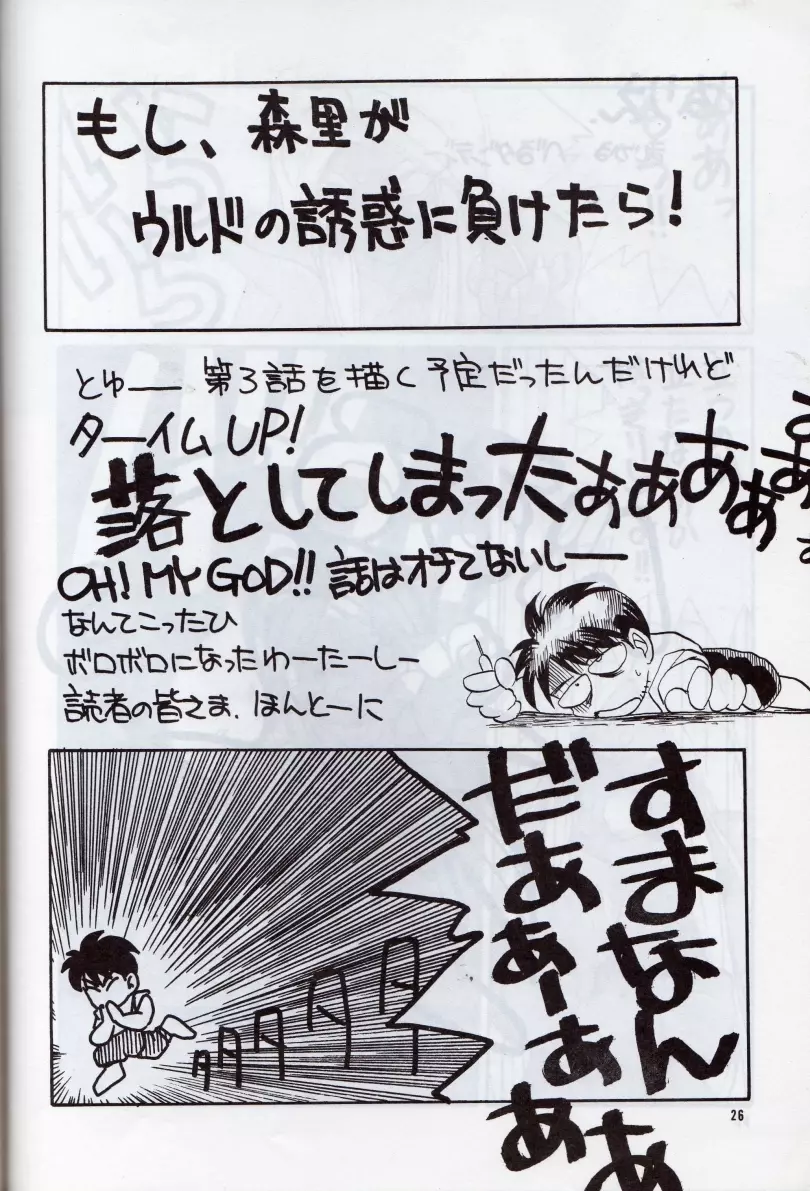 もし、森里が
ウルドの誘惑に負けたら!
とゅー 第3話を描く予定だったんだけれど
ターイムUP!
落としてしまったぁぁあぁぁぁ
OH! MY GOD!! 話はオチてないしー
なんてこったひ
ボロボロになったわーたーしー
読者の皆さま、ほんとーに
すまなん
だあぁーあぁあ
26